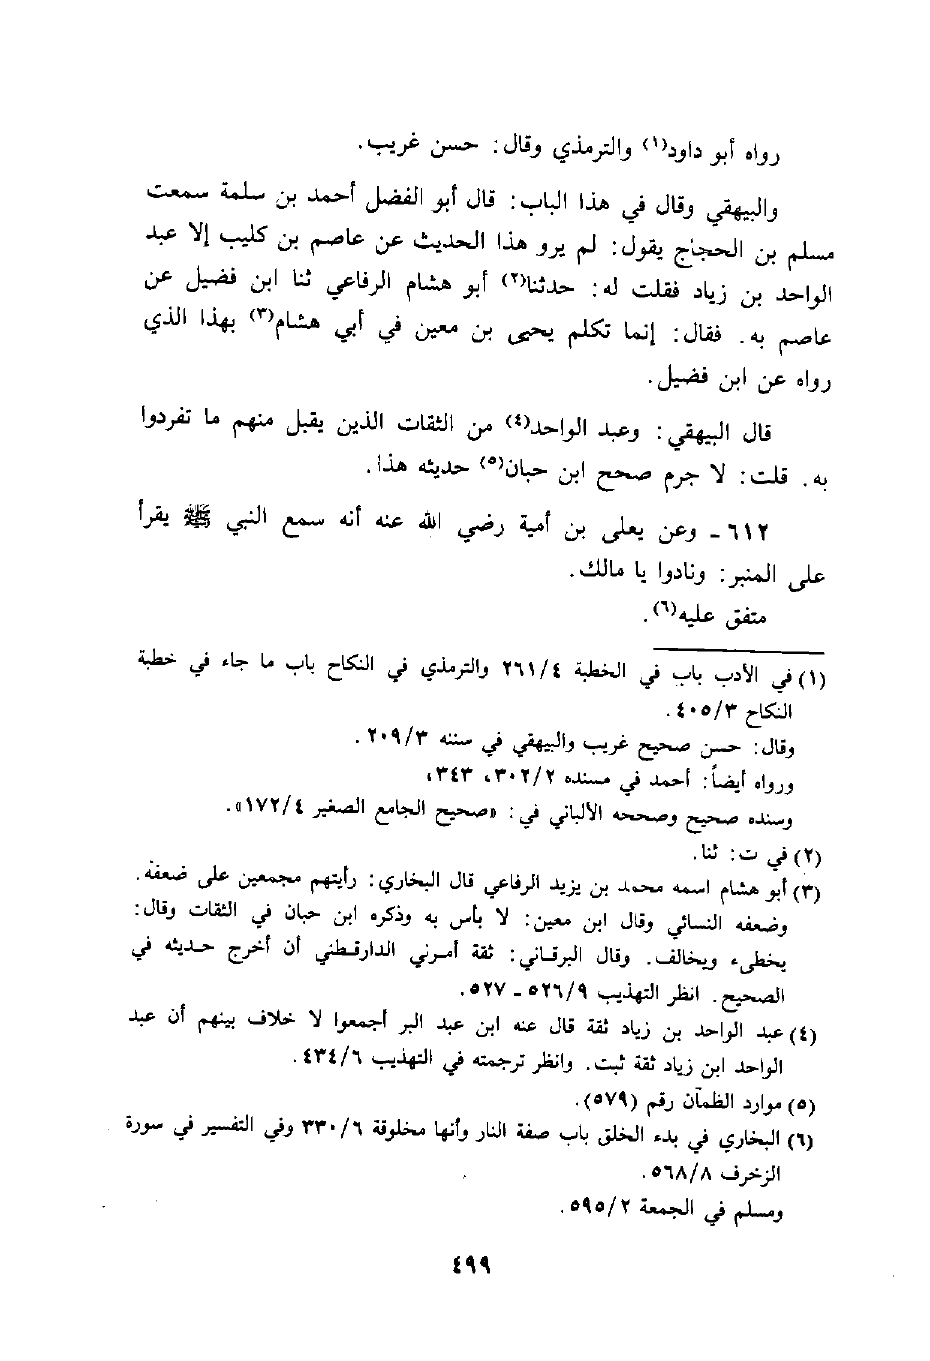 رواه أبو داود(١) والترمذي وقال: حسن غريب.
والبيهقي وقال في هذا الباب: قال أبو الفضل أحمد بن سلمة سمعت
مسلم بن الحجاج يقول: لم يرو هذا الحديث عن عاصم بن كليب إلا عبد
الواحد بن زياد فقلت له: حدثنا(٢) أبو هشام الرفاعي ثنا ابن فضيل عن
عاصم به. فقال: إنما تكلم يحيى بن معين في أبي هشام(٣) بهذا الذي
رواه عن ابن فضيل.
قال البيهقي: وعبد الواحد(٤) من الثقات الذين يقبل منهم ما تفردوا
به. قلت: لا جرم صحح ابن حبان(٥) حديثه هذا.
٦١٢ - وعن يعلى بن أمية رضي الله عنه أنه سمع النبي ﷺ يقرأ
على المنبر: ونادوا يا مالك.
متفق عليه(٦).
(١) في الأدب باب في الخطبة ٢٦١/٤ والترمذي في النكاح باب ما جاء في خطبة
النكاح ٤٠٥/٣.
وقال: حسن صحيح غريب والبيهقي في سننه ٢٠٩/٣.
ورواه أيضاً: أحمد في مسنده ٣٠٢/٢، ٣٤٣،
وسنده صحيح وصححه الألباني في: «صحيح الجامع الصغير ١٧٢/٤».
(٢) في ت: ثنا.
(٣) أبو هشام اسمه محمد بن يزيد الرفاعي قال البخاري: رأيتهم مجمعين على ضعفه.
وضعفه النسائي وقال ابن معين: لا بأس به وذكره ابن حبان في الثقات وقال:
يخطىء ويخالف. وقال البرقاني: ثقة أمرني الدارقطني أن أخرج حديثه في
الصحيح. انظر التهذيب ٥٢٦/٩ - ٥٢٧.
(٤) عبد الواحد بن زياد ثقة قال عنه ابن عبد البر أجمعوا لا خلاف بينهم أن عبد
الواحد ابن زياد ثقة ثبت. وانظر ترجمته في التهذيب ٤٣٤/٦.
(٥) موارد الظمآن رقم (٥٧٩).
(٦) البخاري في بدء الخلق باب صفة النار وأنها مخلوقة ٣٣٠/٦ وفي التفسير في سورة
الزخرف ٥٦٨/٨.
ومسلم في الجمعة ٥٩٥/٢.
٤٩٩